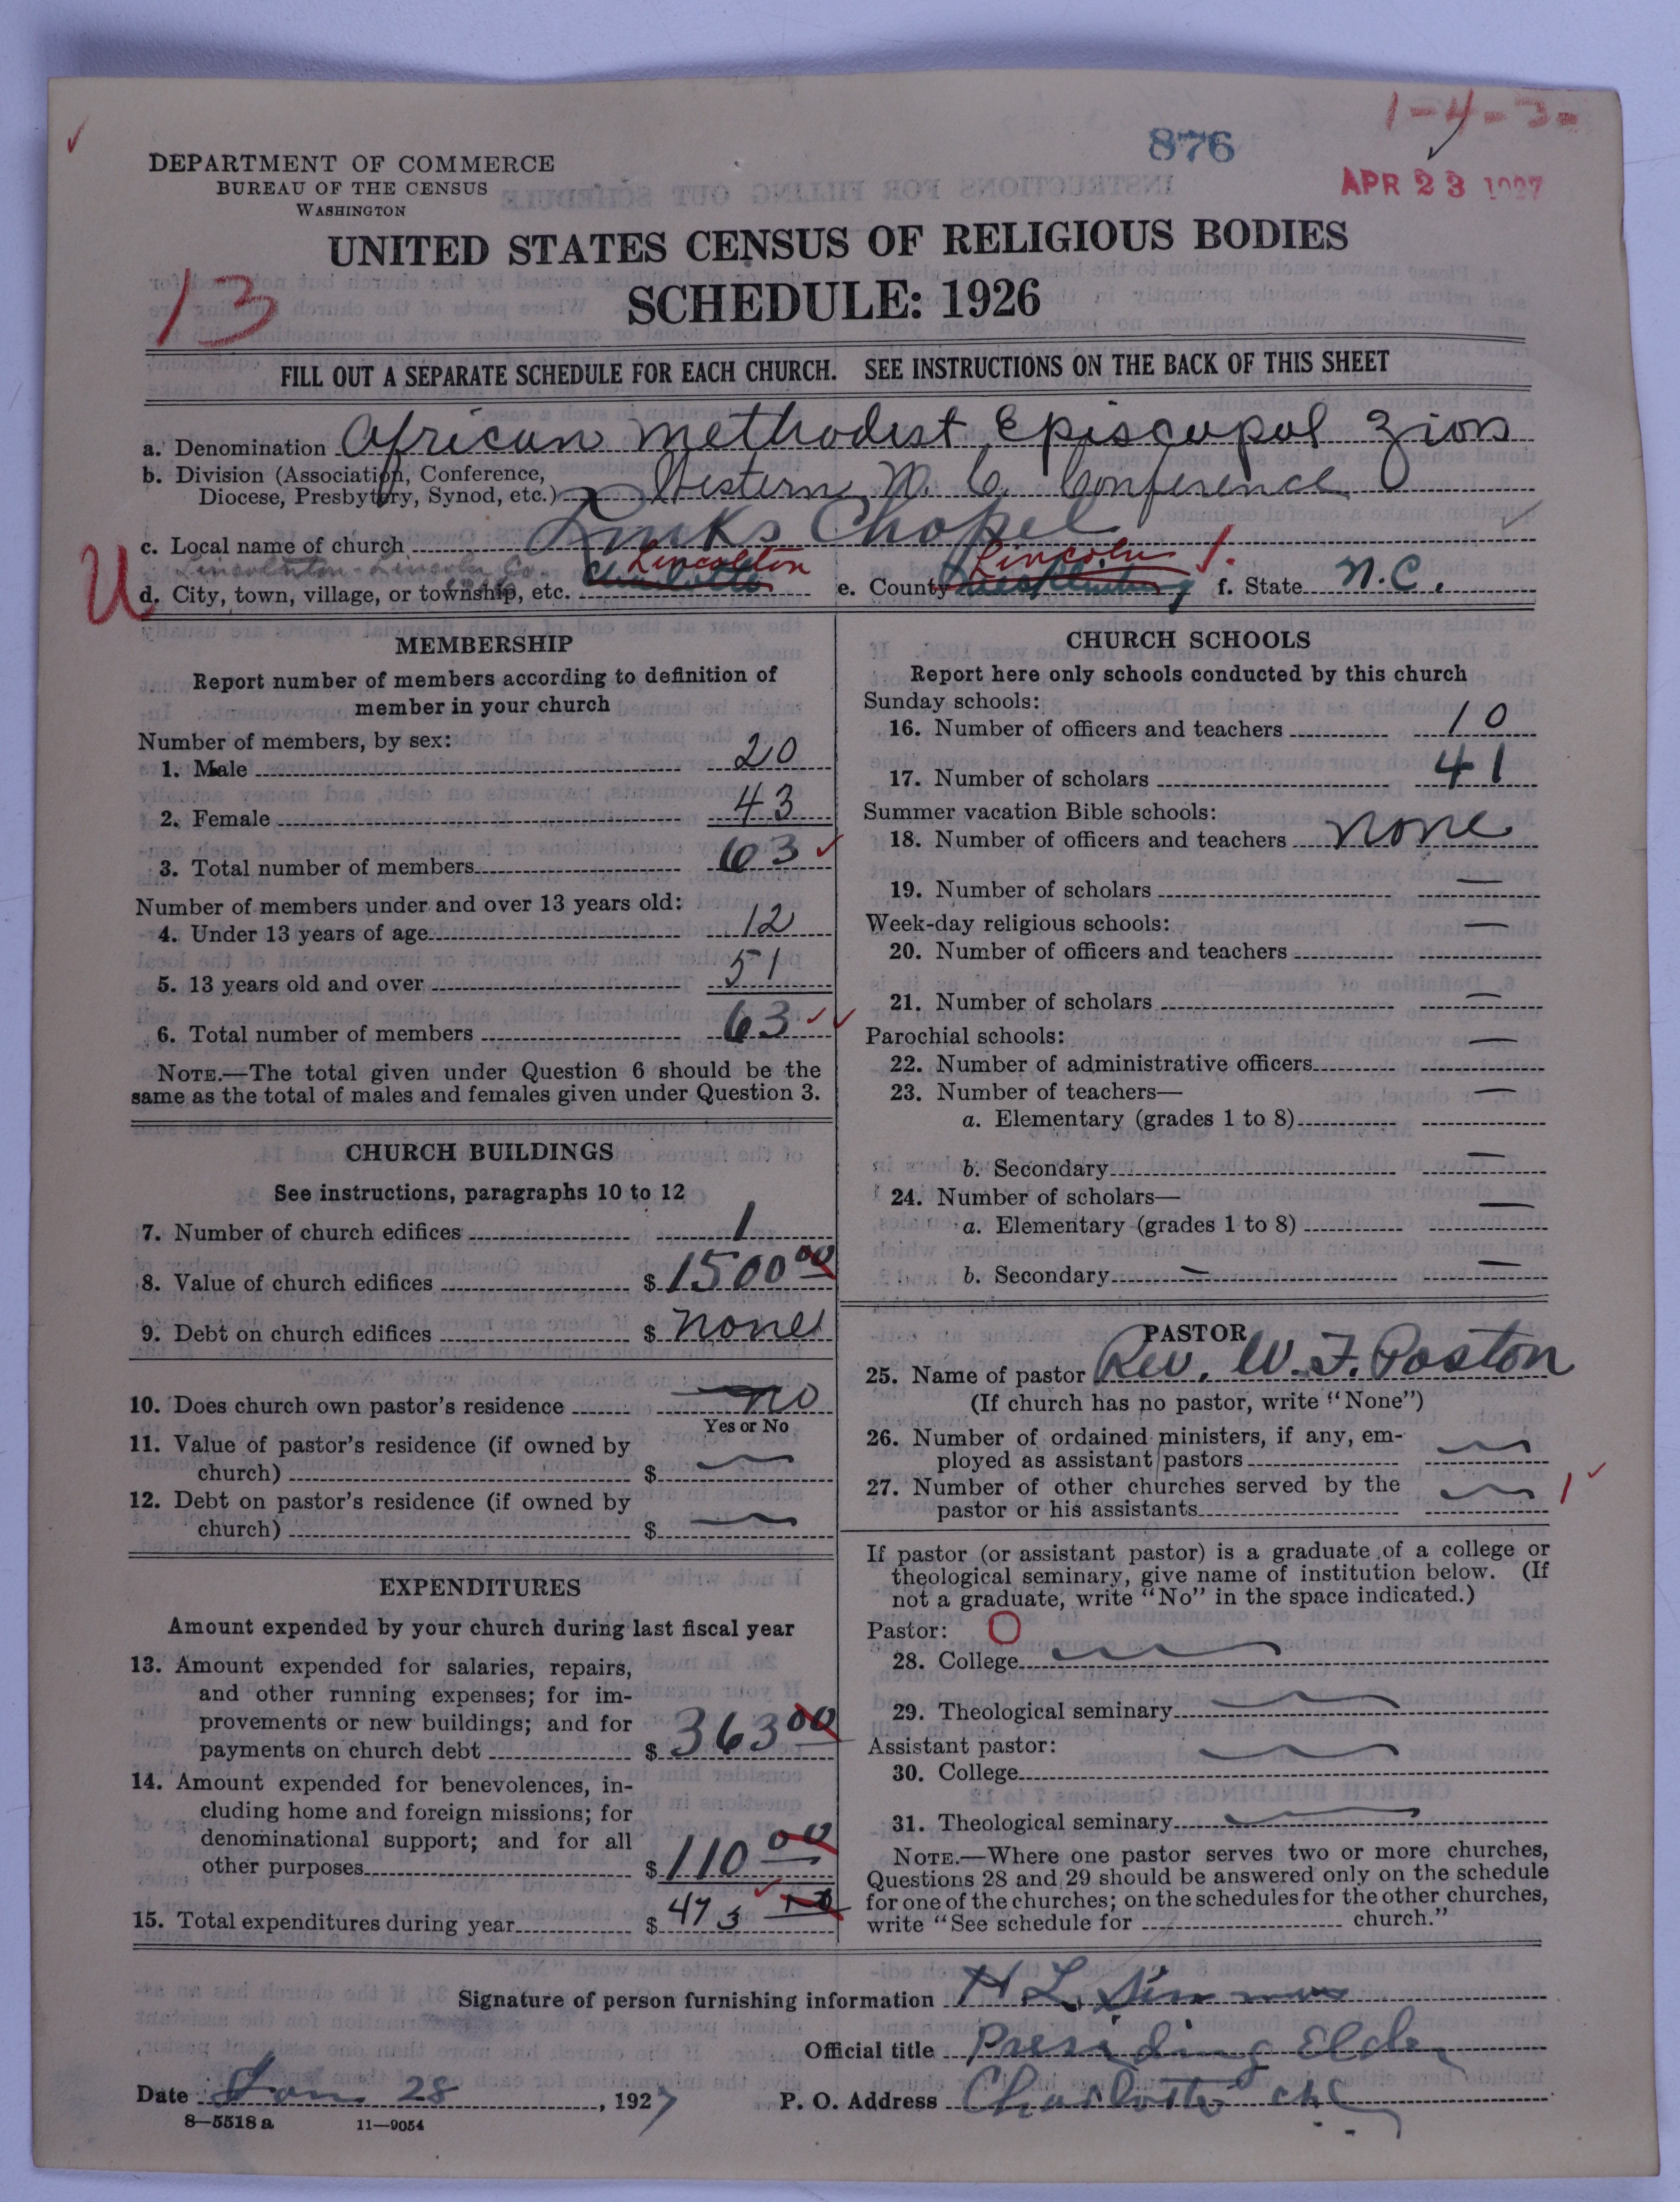 1-4-3-
876
APR 23 1927
DEPARTMENT OF COMMERCE
BUREAU OF THE CENSUS
WASHINGTON
UNITED STATES CENSUS OF RELIGIOUS BODIES
13
SCHEDULE: 1926
FILL OUT A SEPARATE SCHEDULE FOR EACH CHURCH. SEE INSTRUCTIONS ON THE BACK OF THIS SHEET
a. Denomination African Methodist Episcopal Zion
b. Division (Association, Conference,
Diocese, Presbytery, Synod, etc.) Western N. C. Conference
c. Local name of church Chapel
Lincolnton - Lincoln Co.
U
d. City, town, village, or township, etc. Charlotte Lincolnton e. County Mecklenburg Lincoln f. State N.C.
MEMBERSHIP
Report number of members according to definition of
member in your church
Number of members, by sex:
1. Male 20
2. Female 43
3. Total number of members 63
Number of members under and over 13 years old:
4. Under 13 years of age 12
5. 13 years old and over 51
6. Total number of members 63
NOTE.—The total given under Question 6 should be the
same as the total of males and females given under Question 3.
CHURCH BUILDINGS
See instructions, paragraphs 10 to 12
7. Number of church edifices 1
8. Value of church edifices $ 1500 00
9. Debt on church edifices $ none
10. Does church own pastor's residence no
Yes or No
11. Value of pastor's residence (if owned by
church) $ —
12. Debt on pastor's residence (if owned by
church) $ —
EXPENDITURES
Amount expended by your church during last fiscal year
13. Amount expended for salaries, repairs,
and other running expenses; for im-
provements or new buildings; and for
payments on church debt $ 363 00
14. Amount expended for benevolences, in-
cluding home and foreign missions; for
denominational support; and for all
other purposes $ 110 00
15. Total expenditures during year $ 473
CHURCH SCHOOLS
Report here only schools conducted by this church
Sunday schools:
16. Number of officers and teachers 10
17. Number of scholars 41
Summer vacation Bible schools:
18. Number of officers and teachers none
19. Number of scholars —
Week-day religious schools: —
20. Number of officers and teachers
21. Number of scholars —
Parochial schools: —
22. Number of administrative officers
23. Number of teachers— —
a. Elementary (grades 1 to 8)
b. Secondary —
24. Number of scholars—
a. Elementary (grades 1 to 8) —
b. Secondary — —
PASTOR
25. Name of pastor Rev. W. F. Poston
(If church has no pastor, write "None")
26. Number of ordained ministers, if any, em-
ployed as assistant pastors —
27. Number of other churches served by the
pastor or his assistants — 1
If pastor (or assistant pastor) is a graduate of a college or
theological seminary, give name of institution below. (If
not a graduate, write "No" in the space indicated.)
Pastor: O
28. College —
29. Theological seminary —
Assistant pastor: —
30. College
31. Theological seminary —
NOTE.—Where one pastor serves two or more churches,
Questions 28 and 29 should be answered only on the schedule
for one of the churches; on the schedules for the other churches,
write "See schedule for church."
Signature of person furnishing information H. L. Simmons
Official title Presiding Elder
Date Jan 28, 1927 P. O. Address Charlotte NC
8—5518 a 11—9054